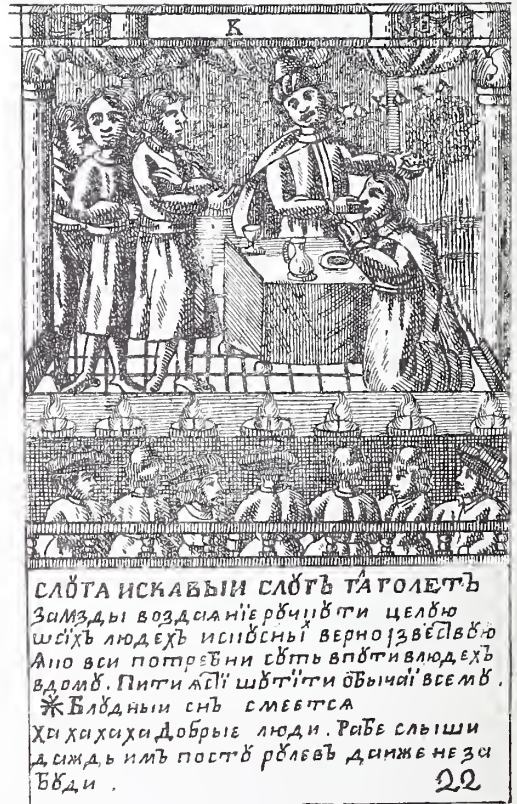 К
СЛꙊГА ИСКАВЫИ СЛꙊГЪ ГЛАГОЛЕТЪ
Замзды воздаянїе рꙋчꙋти целꙋю
людехъ верно ізвѣствꙋю
Яко вси потребни сꙋть впꙋти влюдехъ
вдомꙋ. Пити ясті шꙋтіти обычаї всемꙋ.
Блꙋдный снъ смеется
Ха ха ха ха Добрые люди. Рабе слыши
даждь имъ постꙋ ролевъ данже не за
бꙋди.
22